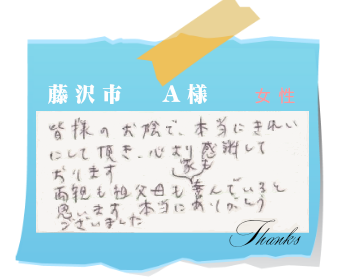 藤沢市 A様 女性
皆様のお陰で、本当にきれい
にして頂き、心より感謝して
おります 家も
両親も祖父母も喜んでいると
思います 本当にありがとう
ございました
Thanks